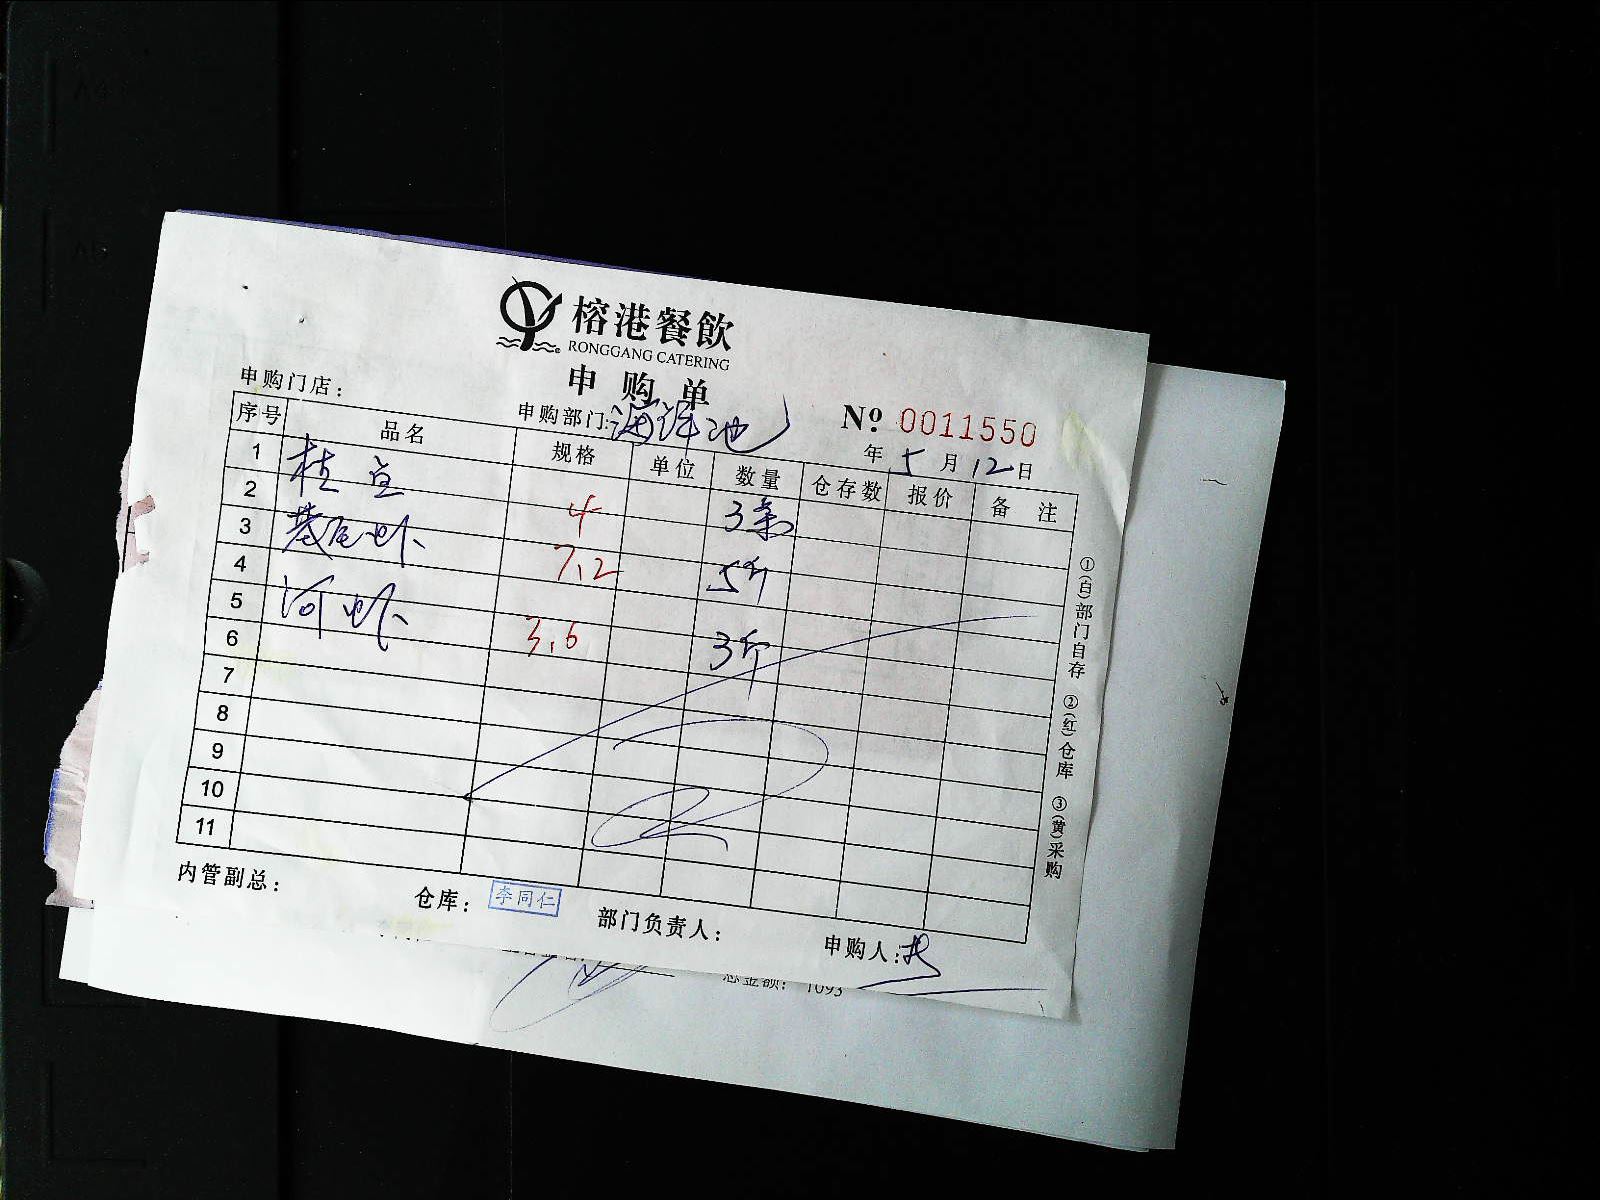 榕港餐飲
RONGGANG CATERING
申购单
申购门店：
申购部门：海鲜池
№ 0011550
年 5 月 12 日
序号 品名 规格 单位 数量 仓存数 报价 备 注
1
桂鱼 4 3条
2
3
基尾虾 7.2 5斤
4
5
河虾 3.6 3斤
6
7
8
9
10
11
①(白)部门自存 ②(红)仓库 ③(黄)采购
内管副总：
仓库： 李同仁
部门负责人：
申购人：
总金额： 1093